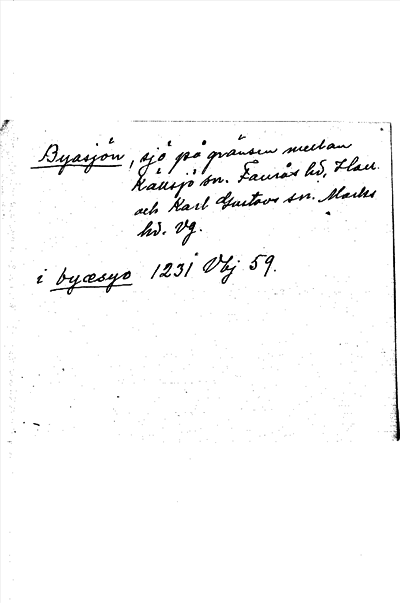 Byasjön, sjö på gränsen mellan
Källsjö sn. Faurås hd, Hall.
och Karl Gustavs sn. Marks
hd. Vg.
i byæsyo 1231 Vbj 59.